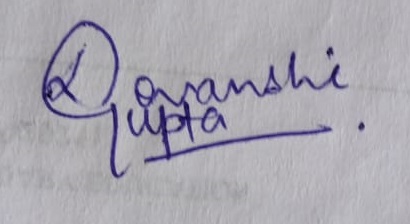 Devanshi
Gupta